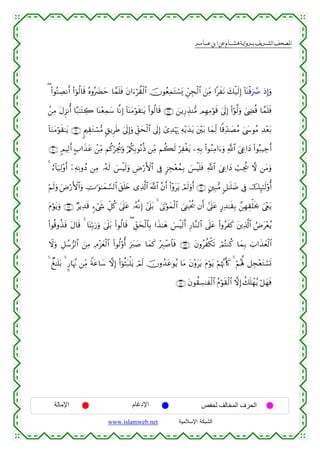 المصحف الشريف برواية هشام عن ابن عامر
وَإِذْ صَرَفْنَا إِلَيْكَ نَفَرًا مِّنَ ٱلْجِنِّ يَسْتَمِعُونَ ٱلْقُرْءَانَ فَلَمَّا حَضَرُوهُ قَالُوٓا۟ أَنصِتُوا۟
فَلَمَّا قُضِىَ وَلَّوْا۟ إِلَىٰ قَوْمِهِم مُّنذِرِينَ قَالُوا۟ يَٰقَوْمَنَآ إِنَّا سَمِعْنَا كِتَٰبًا أُنزِلَ مِنۢ
بَعْدِ مُوسَىٰ مُصَدِّقًا لِّمَا بَيْنَ يَدَيْهِ يَهْدِىٓ إِلَى ٱلْحَقِّ وَإِلَىٰ طَرِيقٍ مُّسْتَقِيمٍ يَٰقَوْمَنَآ
أَجِيبُوا۟ دَاعِىَ ٱللَّهِ وَءَامِنُوا۟ بِهِۦ يَغْفِرْ لَكُم مِّن ذُنُوبِكُمْ وَيُجِرْكُم مِّنْ عَذَابٍ أَلِيمٍ
وَمَن لَّا يُجِبْ دَاعِىَ ٱللَّهِ فَلَيْسَ بِمُعْجِزٍ فِى ٱلْأَرْضِ وَلَيْسَ لَهُۥ مِن دُونِهِۦٓ أَوْلِيَآءُ
أُو۟لَٰٓئِكَ فِى ضَلَٰلٍ مُّبِينٍ أَوَلَمْ يَرَوْا۟ أَنَّ ٱللَّهَ ٱلَّذِى خَلَقَ ٱلسَّمَٰوَٰتِ وَٱلْأَرْضَ وَلَمْ
يَعْىَ بِخَلْقِهِنَّ بِقَٰدِرٍ عَلَىٰٓ أَن يُحْـِۧىَ ٱلْمَوْتَىٰ بَلَىٰٓ إِنَّهُۥ عَلَىٰ كُلِّ شَىْءٍ قَدِيرٌ وَيَوْمَ
يُعْرَضُ ٱلَّذِينَ كَفَرُوا۟ عَلَى ٱلنَّارِ أَلَيْسَ هَٰذَا بِٱلْحَقِّ قَالُوا۟ بَلَىٰ وَرَبِّنَا قَالَ فَذُوقُوا۟
ٱلْعَذَابَ بِمَا كُنتُمْ تَكْفُرُونَ فَٱصْبِرْ كَمَا صَبَرَ أُو۟لُوا۟ ٱلْعَزْمِ مِنَ ٱلرُّسُلِ وَلَا
تَسْتَعْجِل لَّهُمْ كَأَنَّهُمْ يَوْمَ يَرَوْنَ مَا يُوعَدُونَ لَمْ يَلْبَثُوٓا۟ إِلَّا سَاعَةً مِّن نَّهَارٍ بَلَٰغٌ
فَهَلْ يُهْلَكُ إِلَّا ٱلْقَوْمُ ٱلْفَٰسِقُونَ
الحرف المخالف لحفص الإدغام الإمالة
الشبكة الإسلامية www.islamweb.net